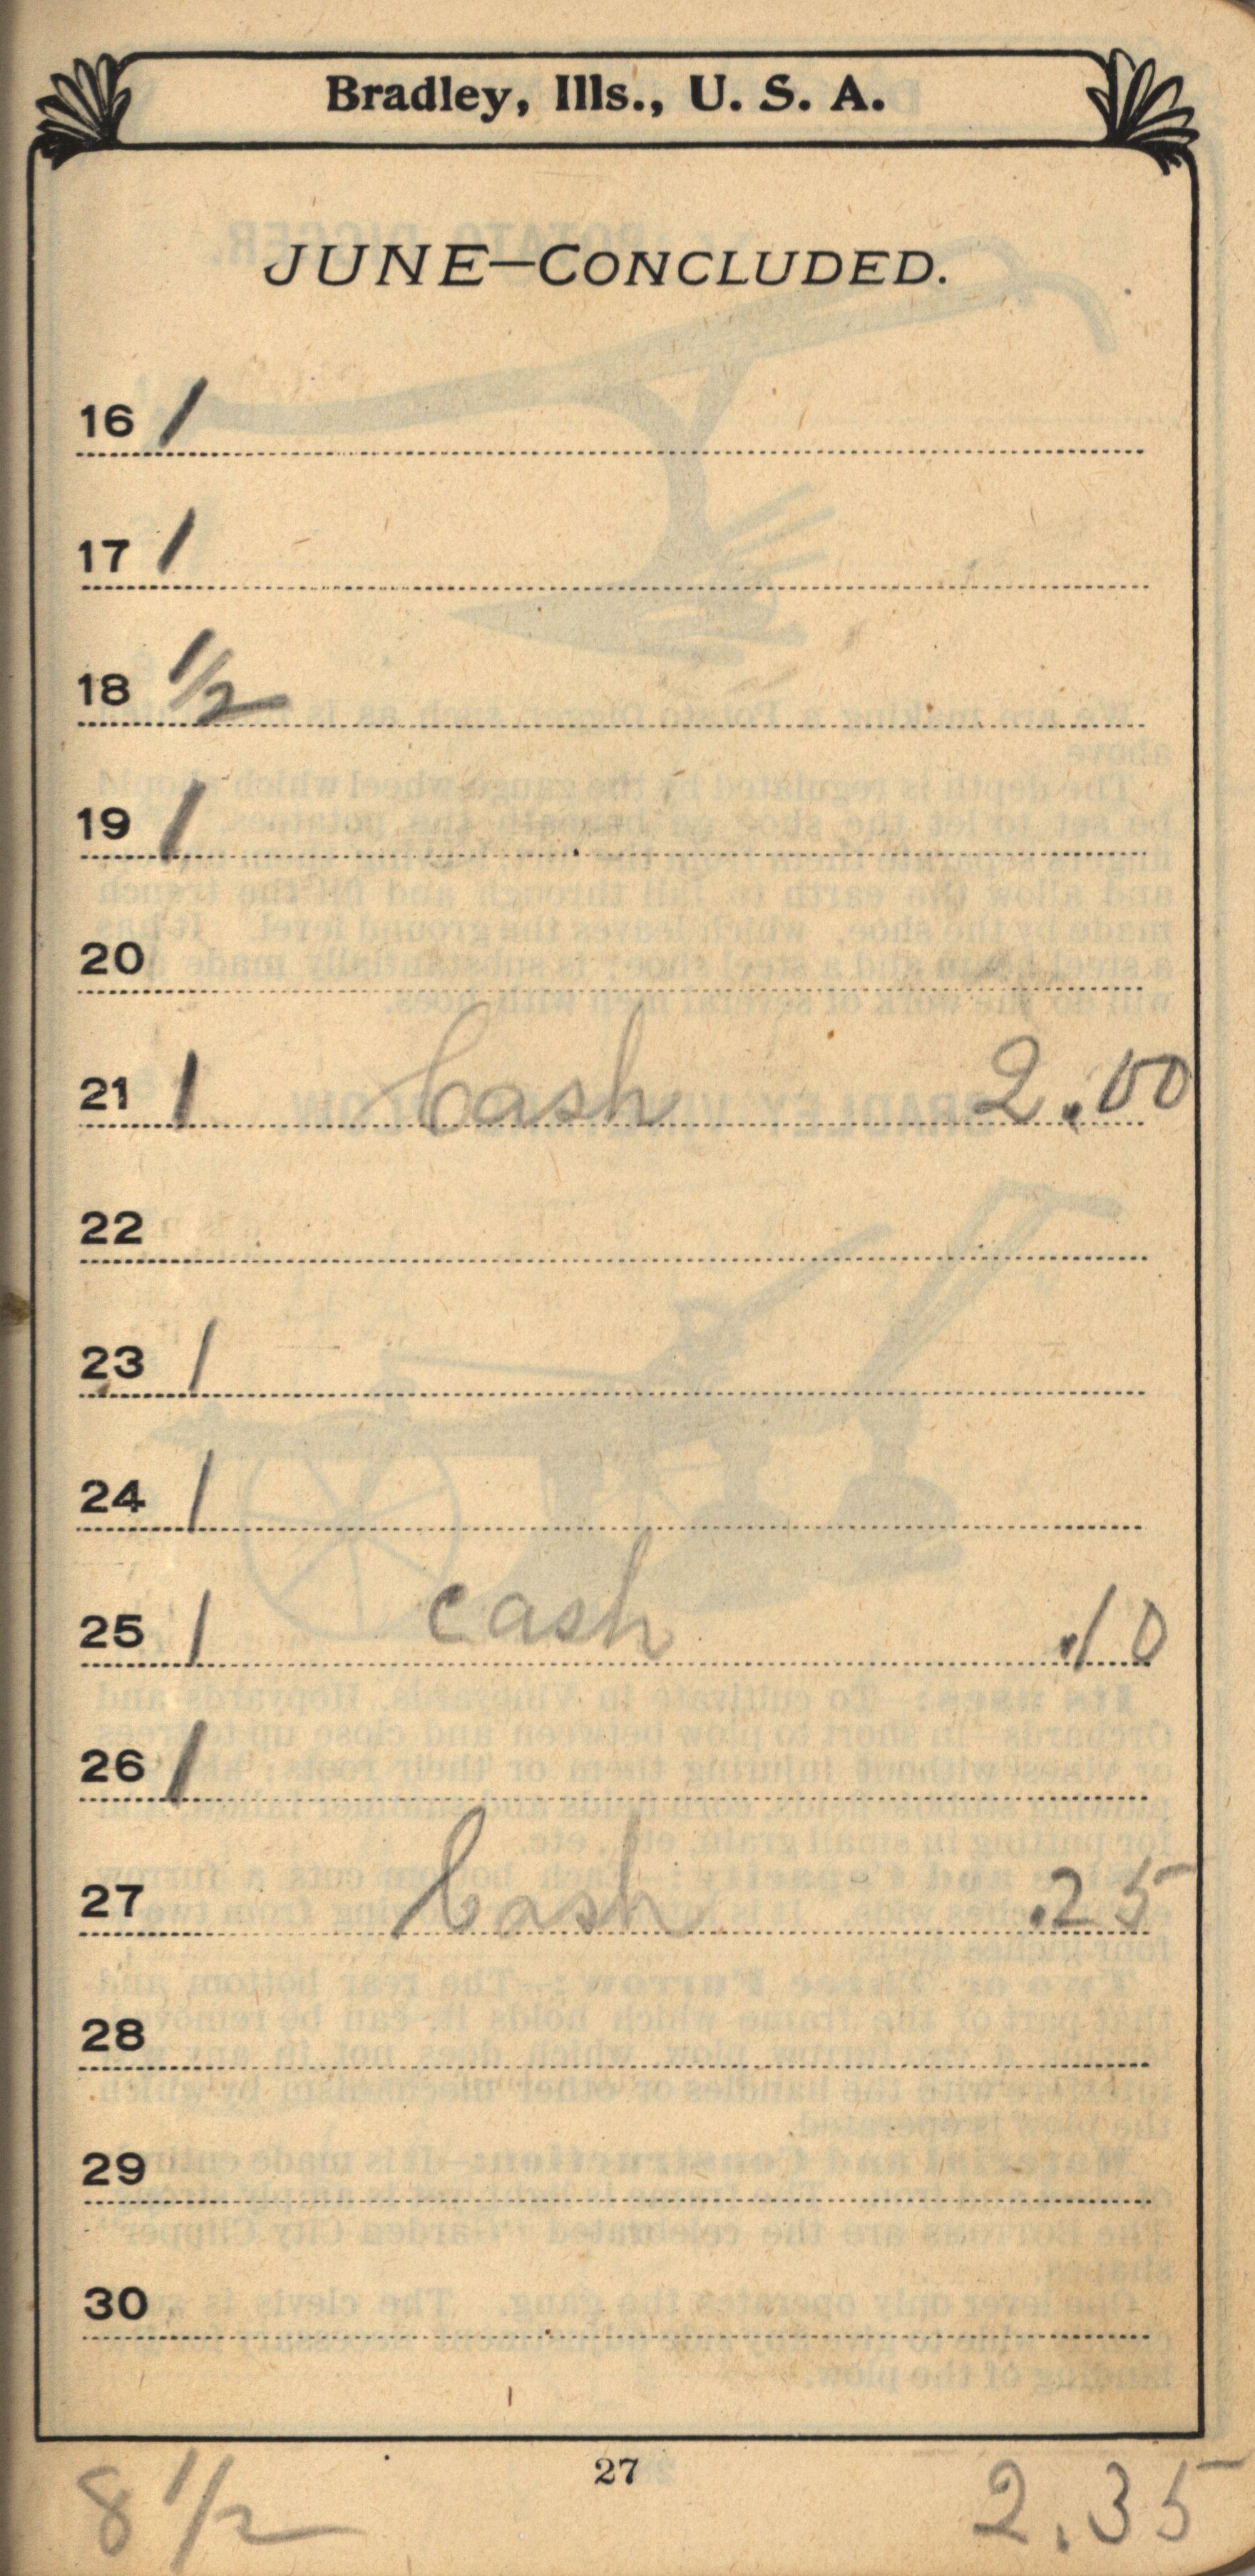 Bradley, Ills., U. S. A.
JUNE—CONCLUDED.
16 1
17 1
18 1/2
19 1
20
21 1 Cash 2.00
22
23 1
24 1
25 1 cash .10
26 1
27 Cash .25
28
29
30
27
8 1/2 2.35